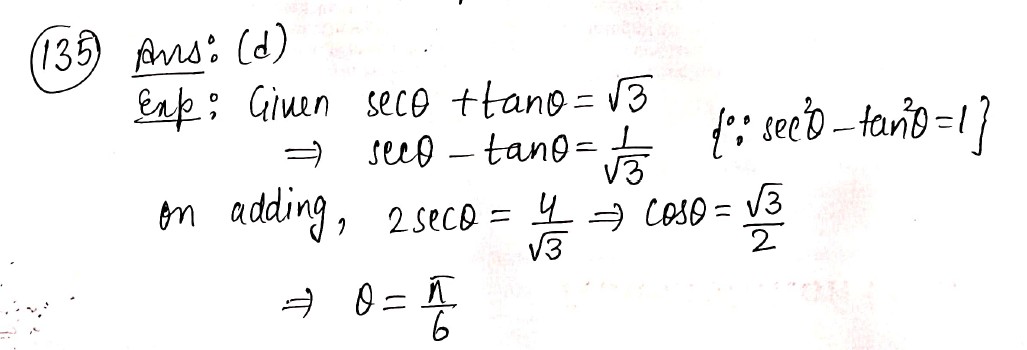 (135) Ans: (d)
Exp: Given secθ + tanθ = √3
⇒ secθ - tanθ = 1/√3 {∵ sec²θ - tan²θ = 1}
on adding, 2secθ = 4/√3 ⇒ cosθ = √3/2
⇒ θ = π/6